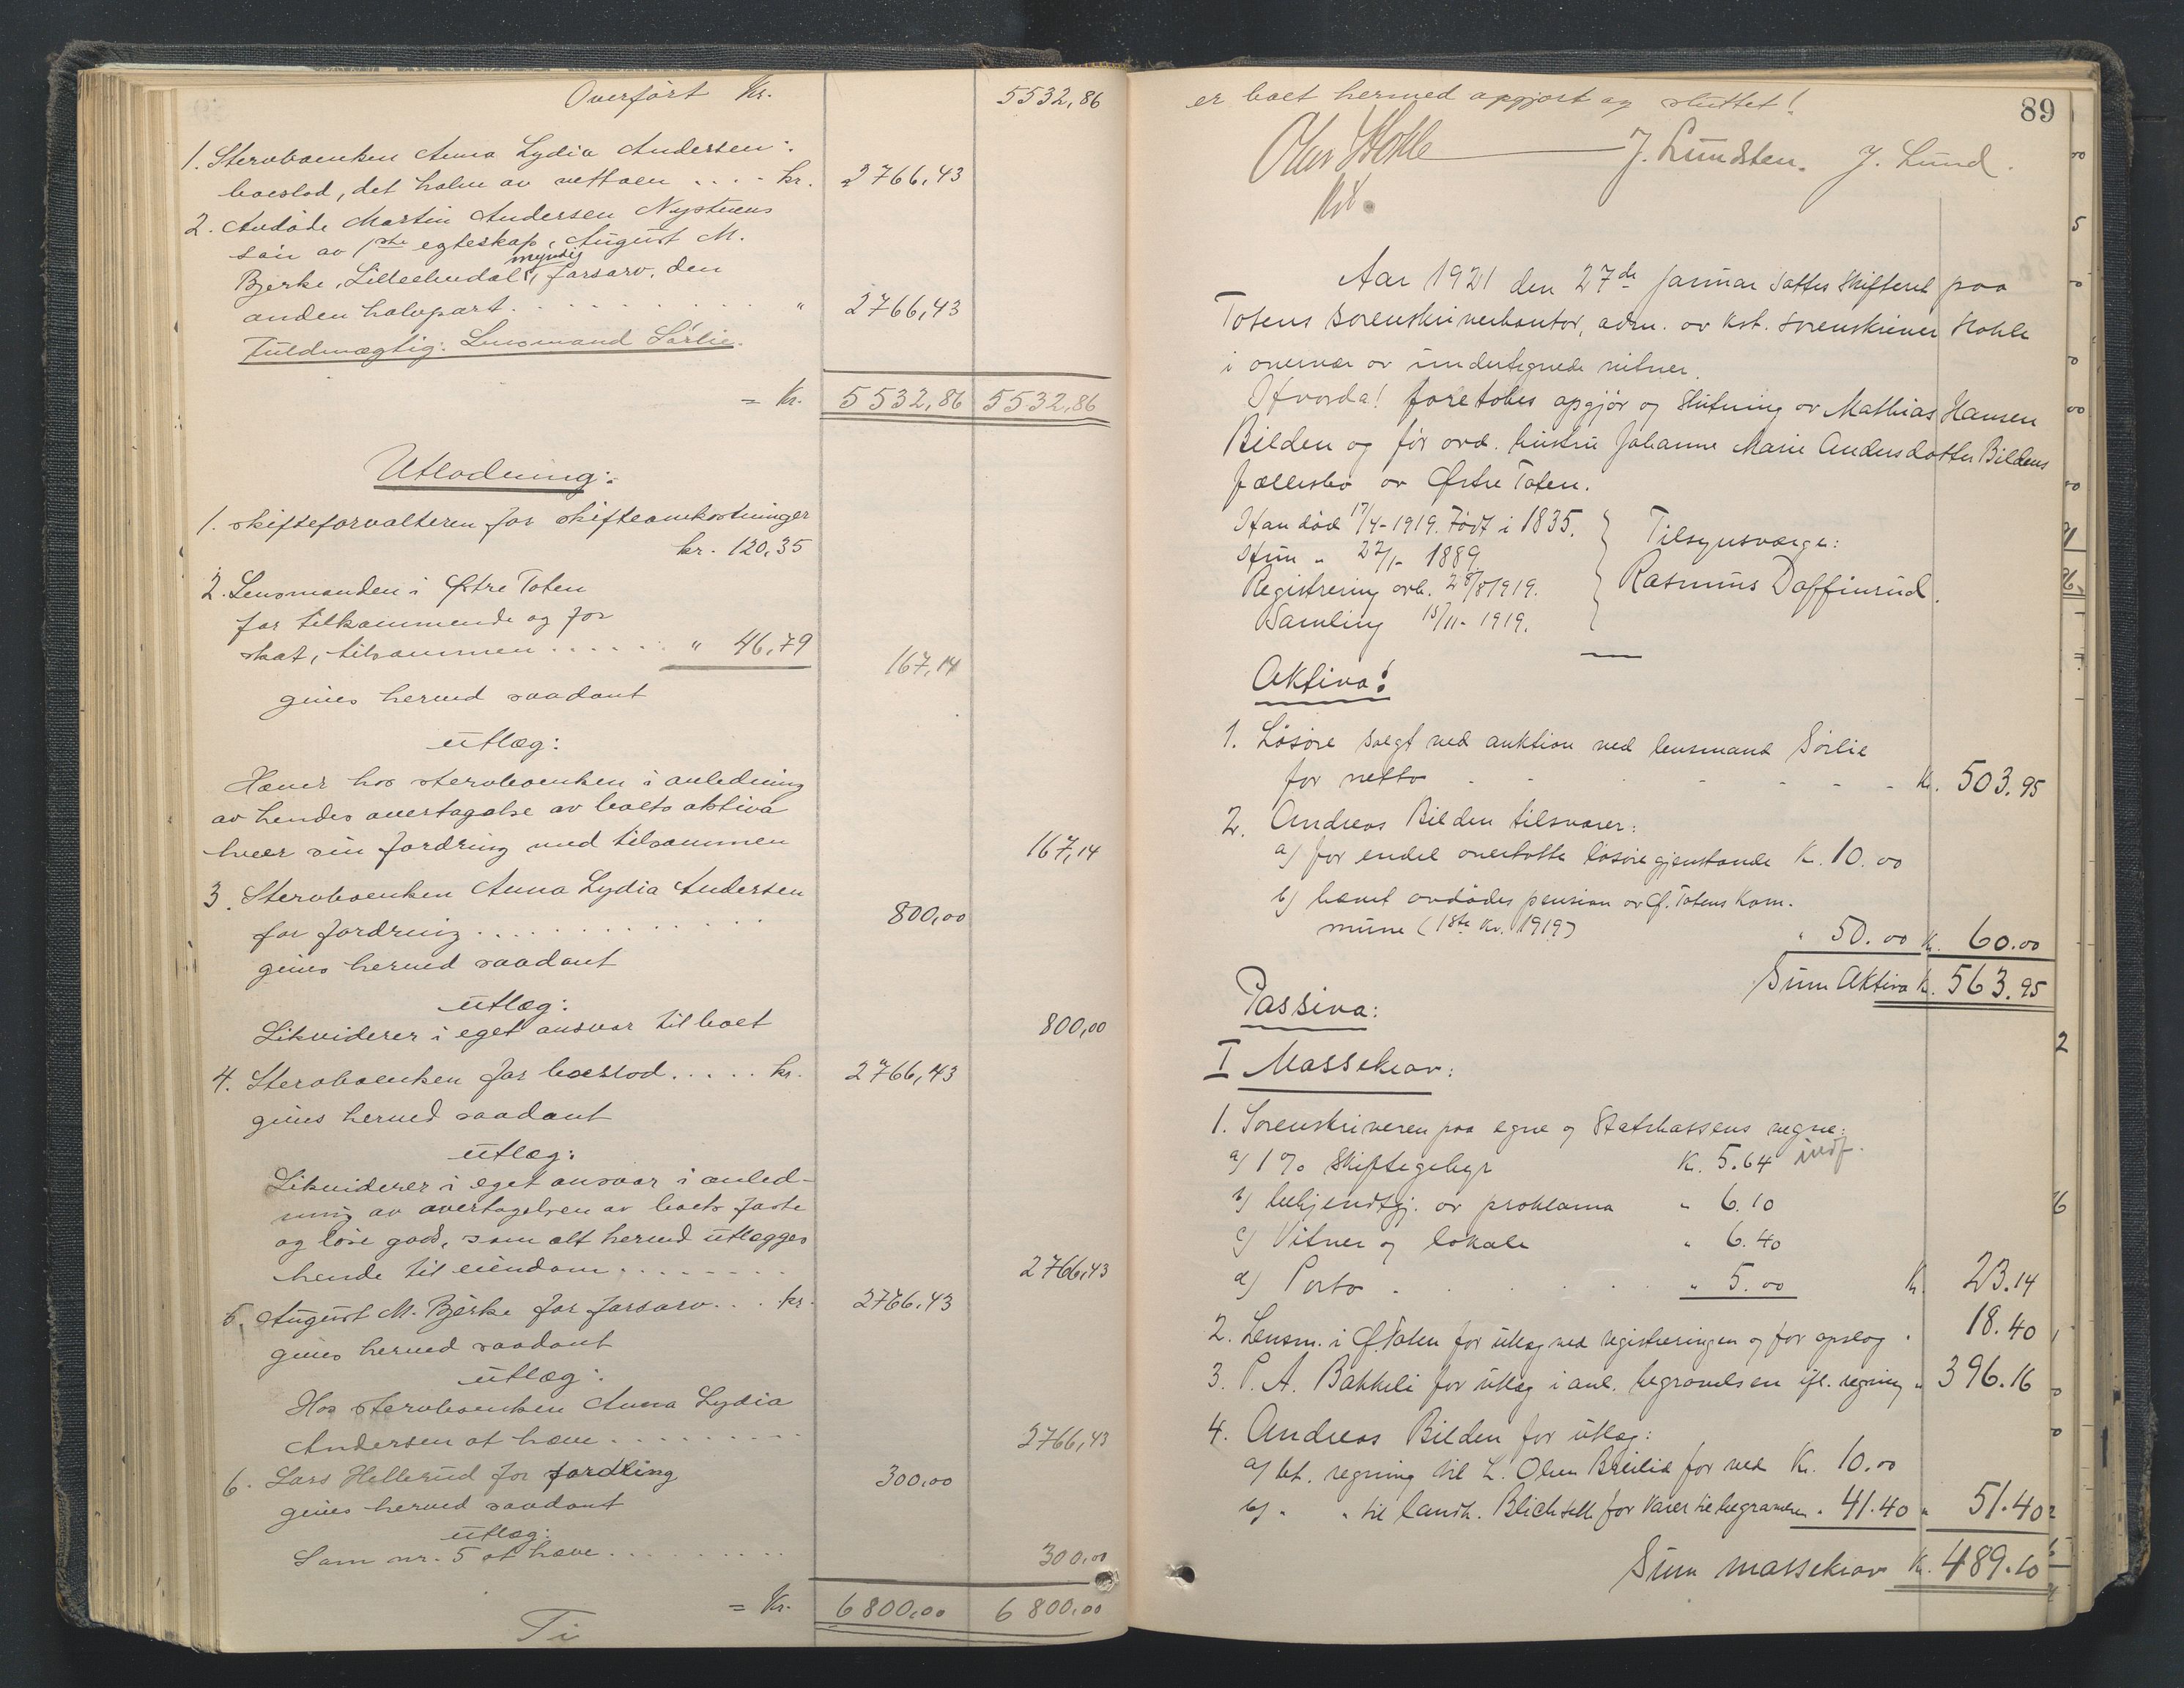 Overført Kr. 5532,86
1. Stervboenken Anna Lydia Andersen:
boeslod, det halve av nettoen .... kr. 2766,43
2. Avdøde Martin Andersen Nystuens
søn av 1ste egteskap, August M.
Bjerke, Lilleelvedal, myndig, farsarv, den
anden halvpart . . . . . . " 2766,43
Fuldmægtig: Lensmand Sørlie.
= Kr. 5532,86 5532,86
Utlodning:
1. Skifteforvalteren for skifteomkostninger
kr. 120,35
2. Lensmanden i Østre Toten
for tilkommende og for
skat, tilsammen . . . . . " 46,79 167,14
gives herved saadant
utlæg:
Hæver hos stervboenken i anledning
av hendes overtagelse av boets aktiva
hver sin fordring med tilsammen 167,14
3. Stervboenken Anna Lydia Andersen
for fordring . . . . . . . . . . . 800,00
gives herved saadant
utlæg:
Likviderer i eget ansvar til boet 800,00
4. Stervboenken for boeslod . . . . . kr. 2766,43
gives herved saadant
utlæg:
Likviderer i eget ansvar i anled-
ning av overtagelsen av boets faste
og løse gods, som alt herved utlægges
hende til eiendom . . . . . . . . 2766,43
5. August M. Bjerke for farsarv . . . kr. 2766,43
gives herved saadant
utlæg:
Hos stervboenken Anna Lydia
Andersen at hæve . . . . . . . . . 2766,43
6. Lars Hellerud for fordring 300,00
gives herved saadant
utlæg:
Som nr. 5 at hæve . . . . . . . . . 300,00
= Kr. 6800,00 6800,00
Ti
89
er boet hermed opgjort og sluttet!
J. Lundsten. J. Lund.
Kst.
Aar 1921 den 27de januar sattes skifteret paa
Totens sorenskriverkontor, adm. av kst. sorenskriver Hohle
i overvær av undertegnede vitner.
Hvorda! foretokes opgjør og slutning av Mathias Hansen
Bilden og før avd. hustru Johanne Marie Andersdatter Bildens
fællesbo av Østre Toten.
Han død 17/4-1919. Født i 1835.
Hun " 22/1- 1889.
Registrering avh. 28/8 1919.
Samling 15/11- 1919.
Tilsynsværge:
Rasmus Daffinrud.
Aktiva:
1. Løsøre solgt ved auktion ved lensmand Sørlie
for netto - - - - Kr. 503.95
2. Andreas Bilden tilsvarer:
a) for endel overtatte løsøregjenstande Kr. 10.00
b) hævet avdødes pension av Ø. Totens kom-
mune (1ste kv. 1919) " 50.00 Kr. 60.00
Sum Aktiva Kr. 563.95
Passiva:
I Massekrav:
1. Sorenskriveren paa egne og Statskassens vegne:
a) 1% skiftegebyr Kr. 5.64 indf.
b) bekjendtgj. av proklama " 6.10
c) Vitner og lokale " 6.40
d) Porto . . . " 5.00 Kr. 23.14
2. Lensm. i Ø. Toten for utlæg ved registreringen og for opslag " 18.40
3. P. A. Bakkeli for utlæg i anl. begravelsen ifl. regning " 396.16
4. Andreas Bilden for utlæg:
a) bet. regning til L. Olsen Breilid for ved Kr. 10.00
b) " " til landh. Blichfeldt for varer til begravelsen " 41.40 " 51.40
Sum massekrav Kr. 489.10